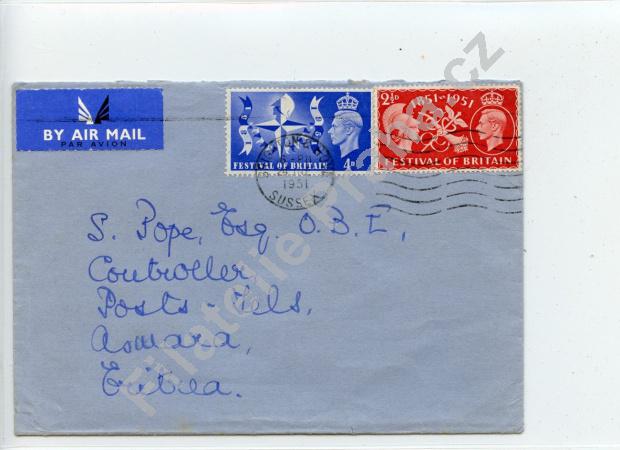 BY AIR MAIL
PAR AVION
1851 1951
FESTIVAL OF BRITAIN 4D
2½D 1851-1951
FESTIVAL OF BRITAIN
1951
SUSSEX
S. Pope, Esq. O.B.E,
Controller,
Posts - Tels,
Asmara,
Eritrea.
Filatelie Pr .cz